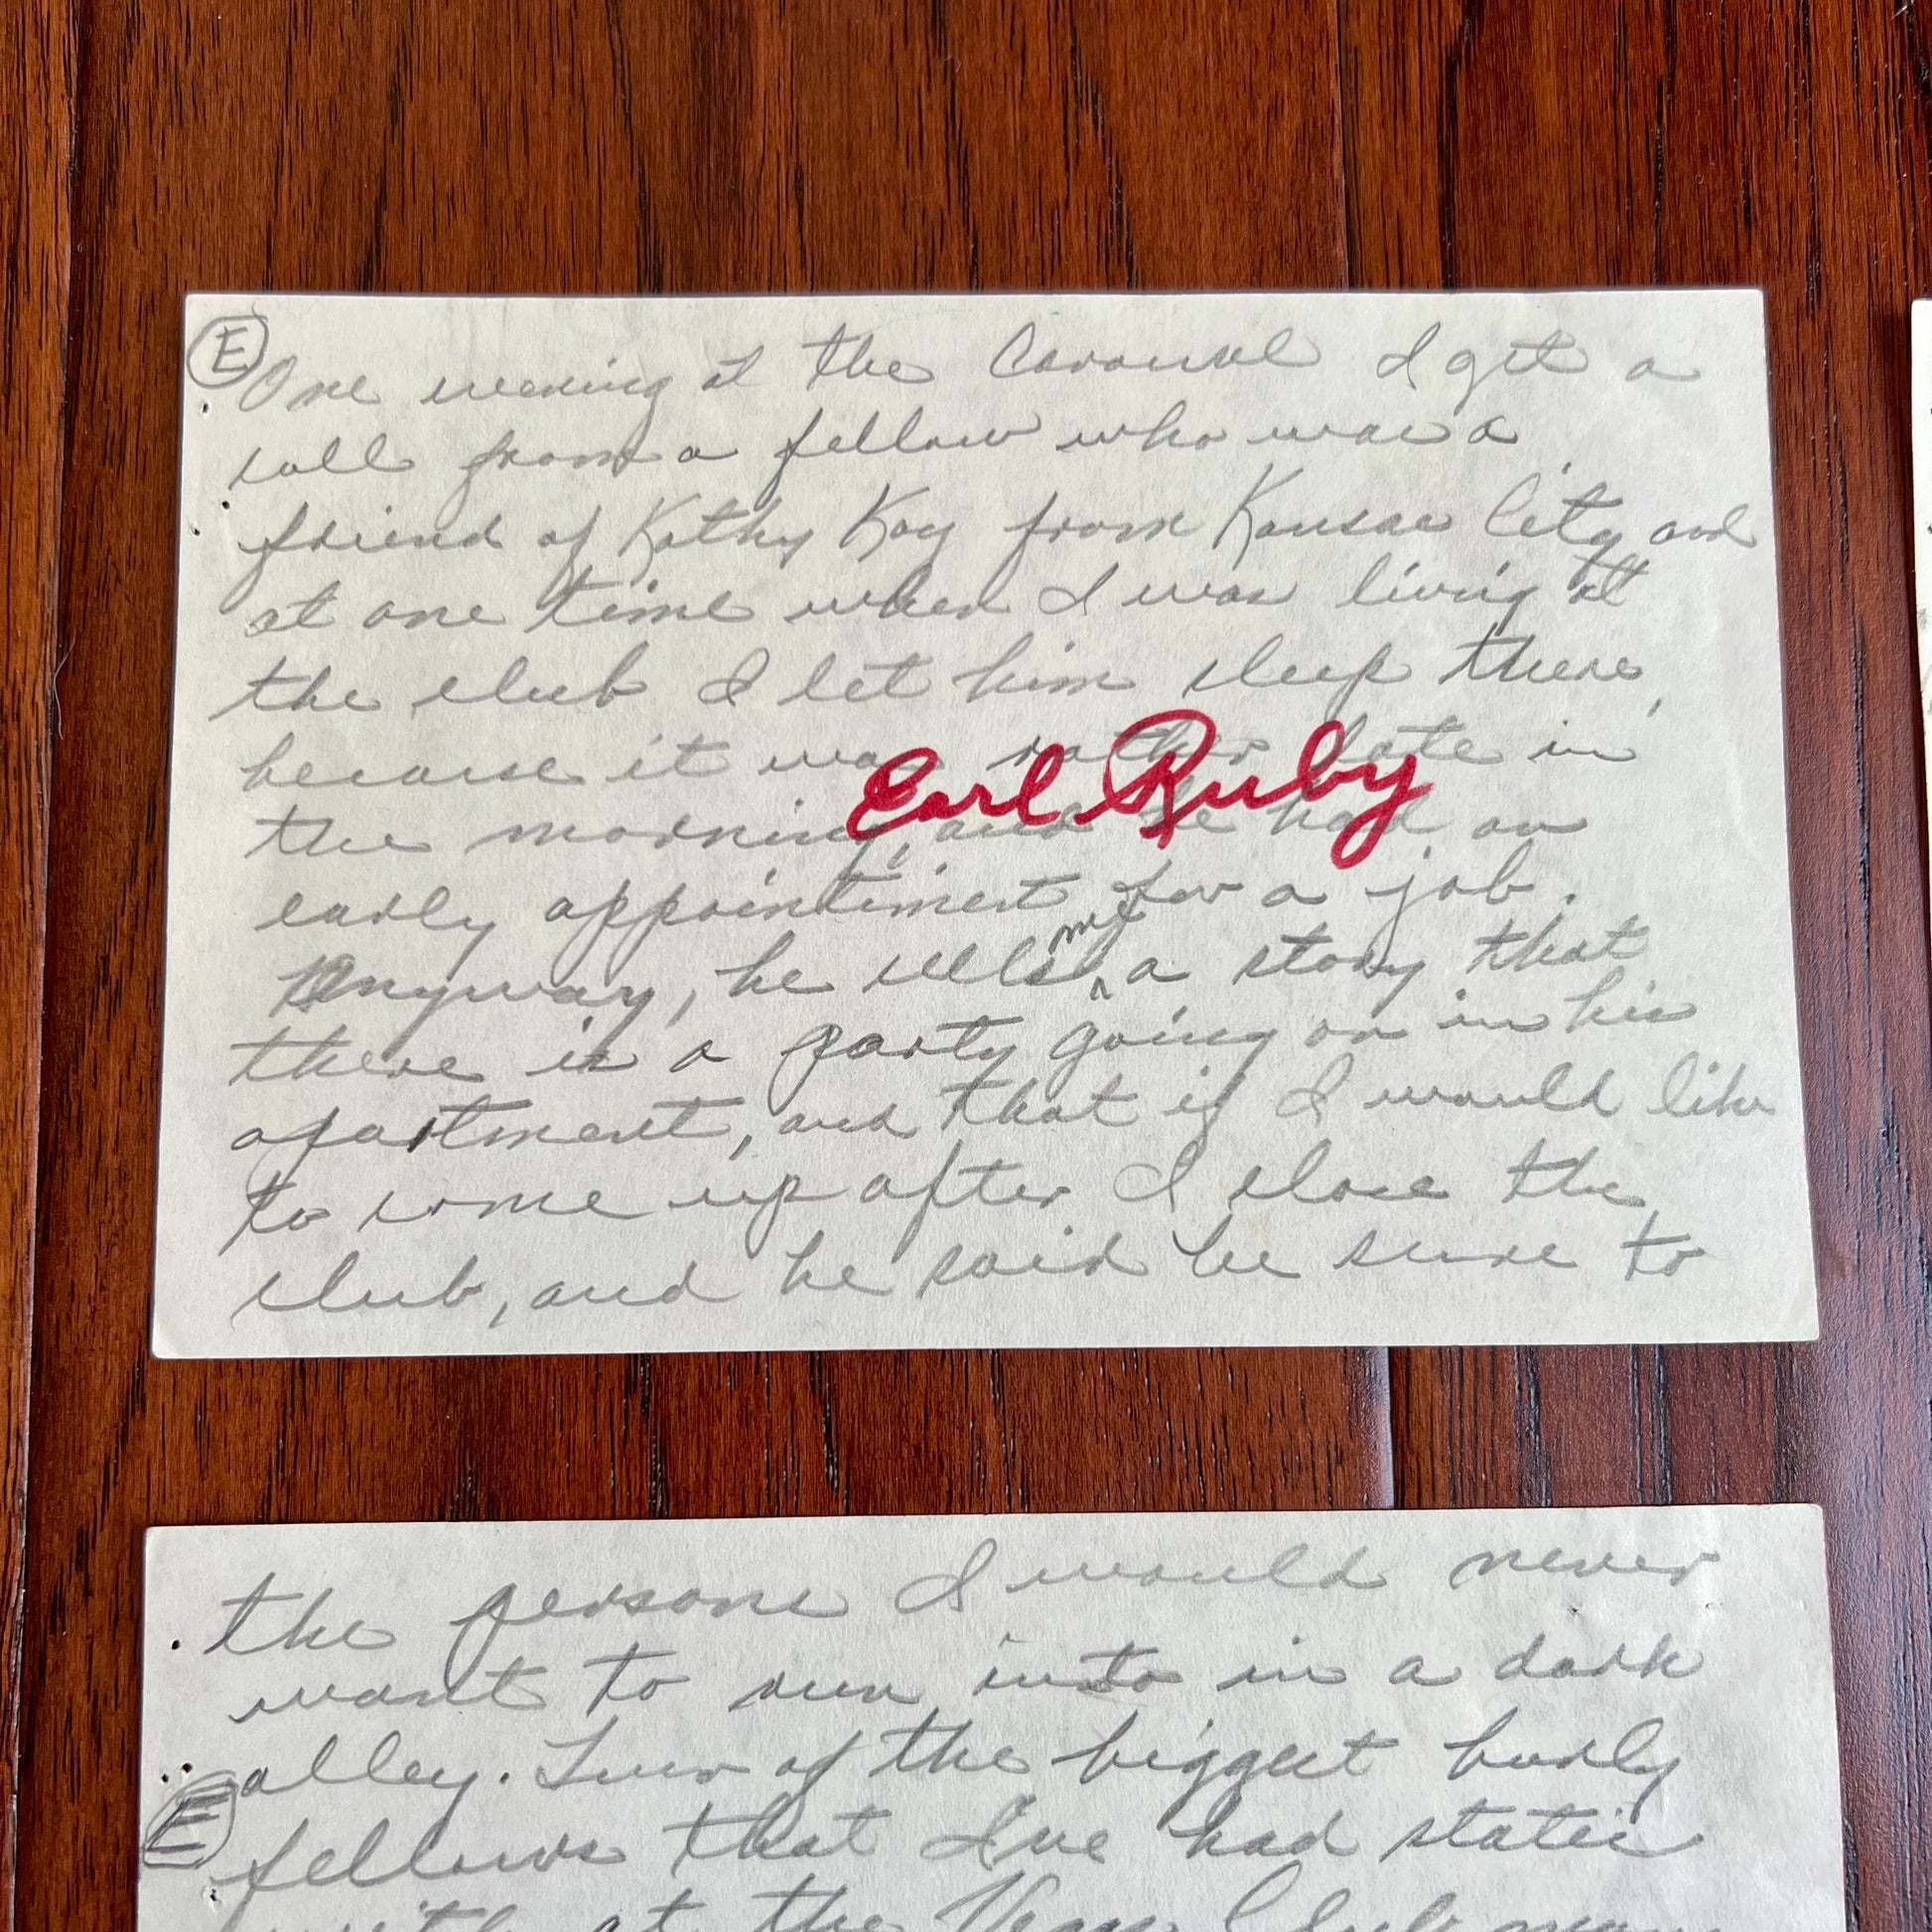 E
One evening at the Carousel I get a
call from a fellow who was a
friend of Kathy Kay from Kansas City, and
at one time when I was living at
the club I let him sleep there,
because it was rather late in
Earl Ruby
the morning, and he had an
early appointiment for a job.
Anyway, he tells me a story that
there is a party going on in his
apartment, and that if I would like
to come up after I close the
club, and he said be sure to
the persons I would never
want to run into in a dark
alley. Two of the biggest burly
E
fellows that I've had static
with at the Vegas Club